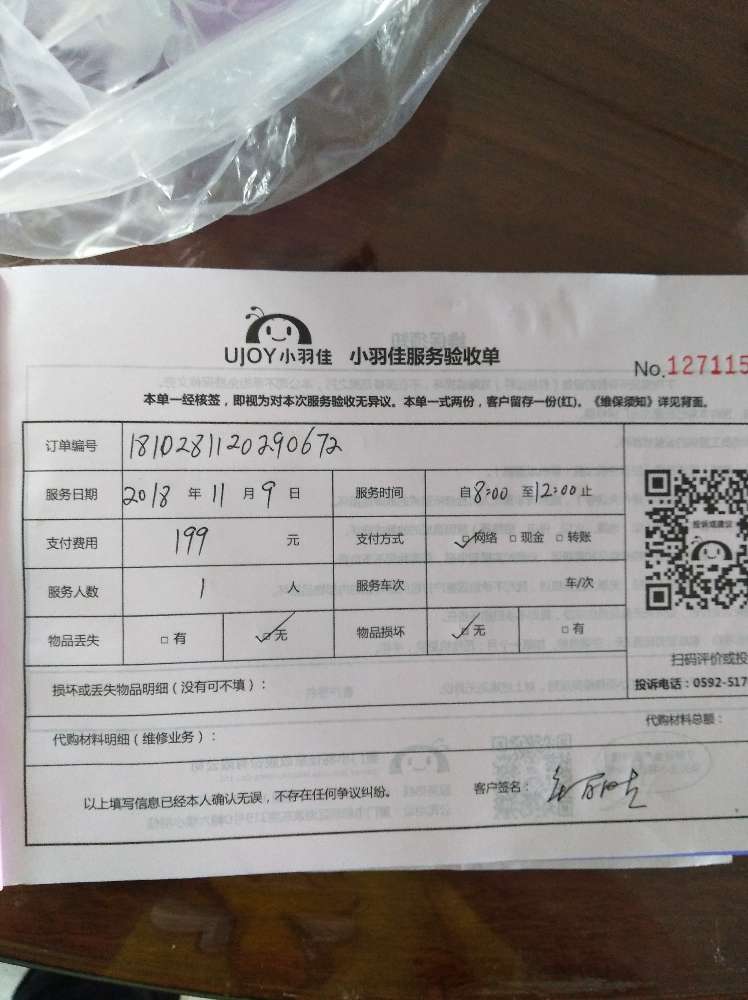 UJOY小羽佳 小羽佳服务验收单
No.127115
本单一经核签，即视为对本次服务验收无异议。本单一式两份，客户留存一份(红)。《维保须知》详见背面。
订单编号 1810281120290672
服务日期 2018 年 11 月 9 日 服务时间 自8:00 至12:00止
支付费用 199 元 支付方式 ☑网络 □现金 □转账
服务人数 1 人 服务车次 车/次
物品丢失 □有 ☑无 物品损坏 ☑无 □有
投诉或建议
扫码评价或投
投诉电话：0592-517
损坏或丢失物品明细（没有可不填）：
代购材料明细（维修业务）： 代购材料总额：
以上填写信息已经本人确认无误，不存在任何争议纠纷。 客户签名：